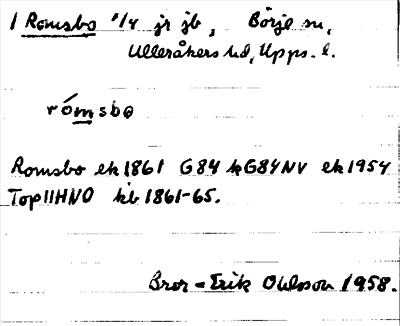 1 Romsbo 1/4 jr jb, Börje sn,
Ulleråkers hd, Upps. l.
rómsbo
Romsbo ek 1861 G84 kG84NV ek 1954
Top11HNO kb 1861-65.
Bror-Erik Ohlsson 1958.